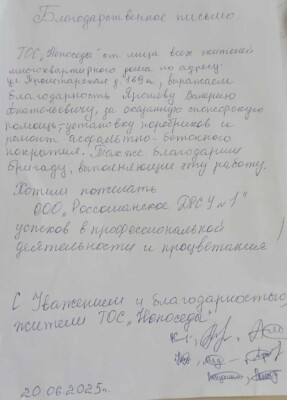 Благодарственное письмо
ТОС „Непоседы" от лица всех жителей
многоквартирного дома по адресу
ул. Пролетарская д. 169а, выражаем
благодарность Ярошеву Валерию
Анатольевичу, за оказанную спонсорскую
помощь, установку поребриков и
ремонт асфальтно-бетонного
покрытия. Также благодарим
бригаду, выполняющие эту работу.
Хотим пожелать
ООО „Россошанское ДРСУ №1"
успехов в профессиональной
деятельности и процветания!
С Уважением и благодарностью,
жители ТОС „Непоседы".
20.06.2025г.